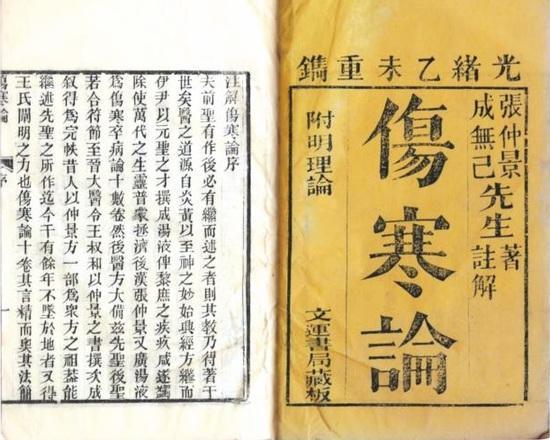 光緒乙未重鐫
張仲景
成無己
先生
著
註解
傷寒論
附明理論
文運書局藏板
注解傷寒論序
夫前聖有作後必有繼而述之者則其教乃得著于
世矣醫之道源自炎黃以至神之妙始興經方繼而
伊尹以元聖之才撰成湯液俾黎庶之疾疢咸遂蠲
除使萬代之生靈普蒙拯濟後漢張仲景又廣湯液
爲傷寒卒病論十數卷然後醫方大備茲先聖後聖
若合符節至晉太醫令王叔和以仲景之書撰次成
敘得爲完帙昔人以仲景方一部爲衆方之祖葢能
繼述先聖之所作迄今千有餘年不墜於地者又得
王氏闡明之力也傷寒論十卷其言精而奧其法簡
傷寒論
序
一